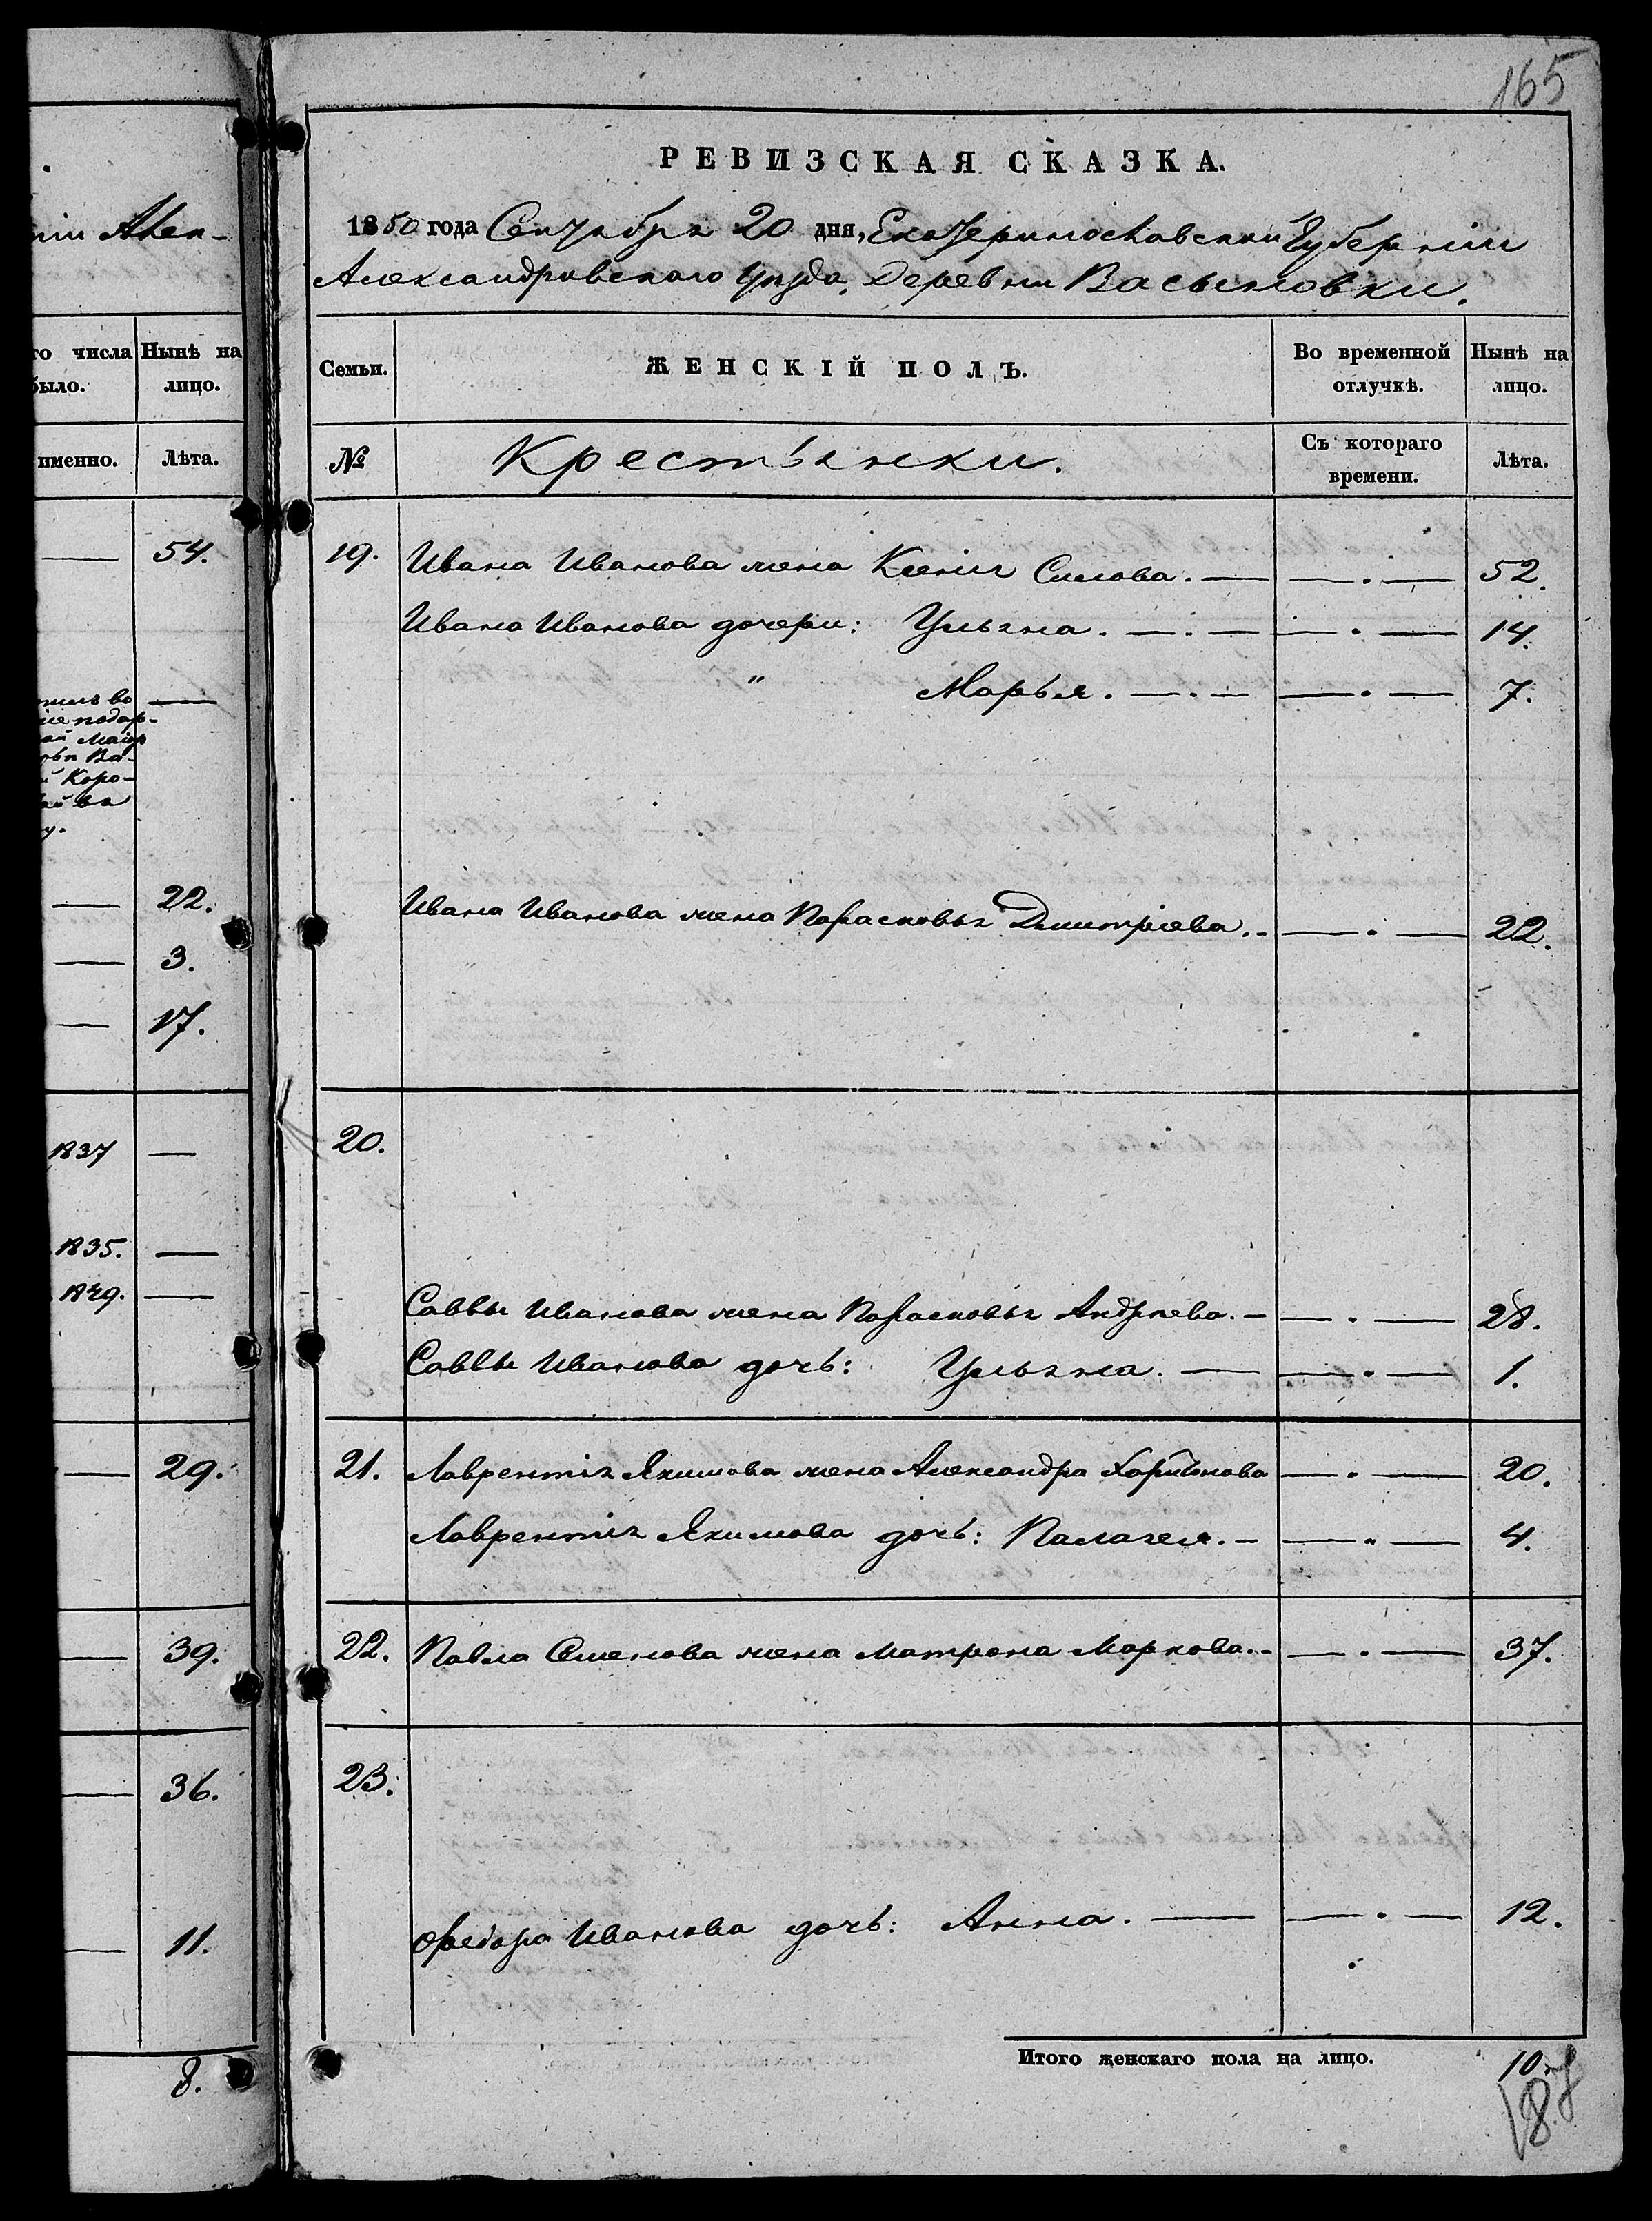 165
РЕВИЗСКАЯ СКАЗКА.
1850 года Сентября 20 дня, Екатеринославской Губерніи
Александровского Уѣзда, Деревни Васыновки.
Семьи. ЖЕНСКІЙ ПОЛЪ. Во временной отлучкѣ. Нынѣ на лицо.
№ Крестьянки. Съ котораго времени. Лѣта.
19. Ивана Иванова жена Ксенія Силова. — — . — 52.
Ивана Иванова дочери: Ульяна. — . — — . — 14.
" Марья. — . — — . — 7.
Ивана Иванова жена Парасковья Дмитріева. - — . — 22.
20.
Саввы Иванова жена Парасковья Андрѣева. - — . — 28.
Саввы Иванова дочь: Ульяна. — — . — 1.
21. Лаврентія Якимова жена Александра Харитонова — . — 20.
Лаврентія Якимова дочь: Палагея. - — . — 4.
22. Павла Семенова жена Матрона Маркова. - — . — 37.
23.
Федора Иванова дочь: Анна. — — . — 12.
Итого женскаго пола на лицо. 10.
18
го числа было. Нынѣ на лицо.
именно. Лѣта.
— 54.
—
подар-
Ва-
Коро-
— 22.
— 3.
— 17.
1837 —
1835. —
1849. —
— 29.
— 39.
— 36.
— 11.
8.